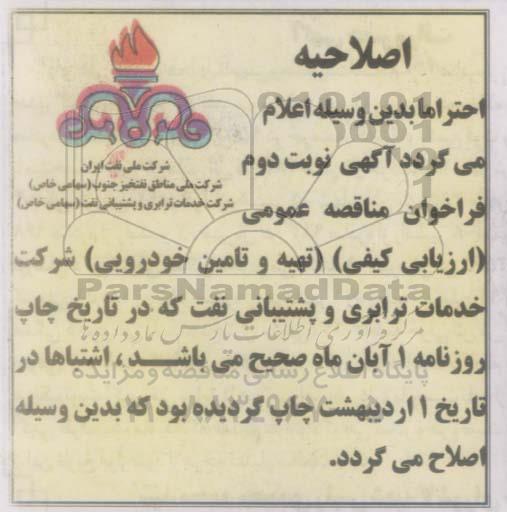 اصلاحیه
احتراما بدین وسیله اعلام
می گردد آگهی نوبت دوم
فراخوان مناقصه عمومی
(ارزیابی کیفی) (تهیه و تامین خودرویی) شرکت
خدمات ترابری و پشتیبانی نفت که در تاریخ چاپ
روزنامه ۱ آبان ماه صحیح می باشد، اشتباها در
تاریخ ۱ اردیبهشت چاپ گردیده بود که بدین وسیله
اصلاح می گردد.
شرکت ملی نفت ایران
شرکت ملی مناطق نفتخیز جنوب (سهامی خاص)
شرکت خدمات ترابری و پشتیبانی نفت (سهامی خاص)
ParsNamadData
مرکز فرآوری اطلاعات پارس نماد داده ها
پایگاه اطلاع رسانی مناقصه و مزایده